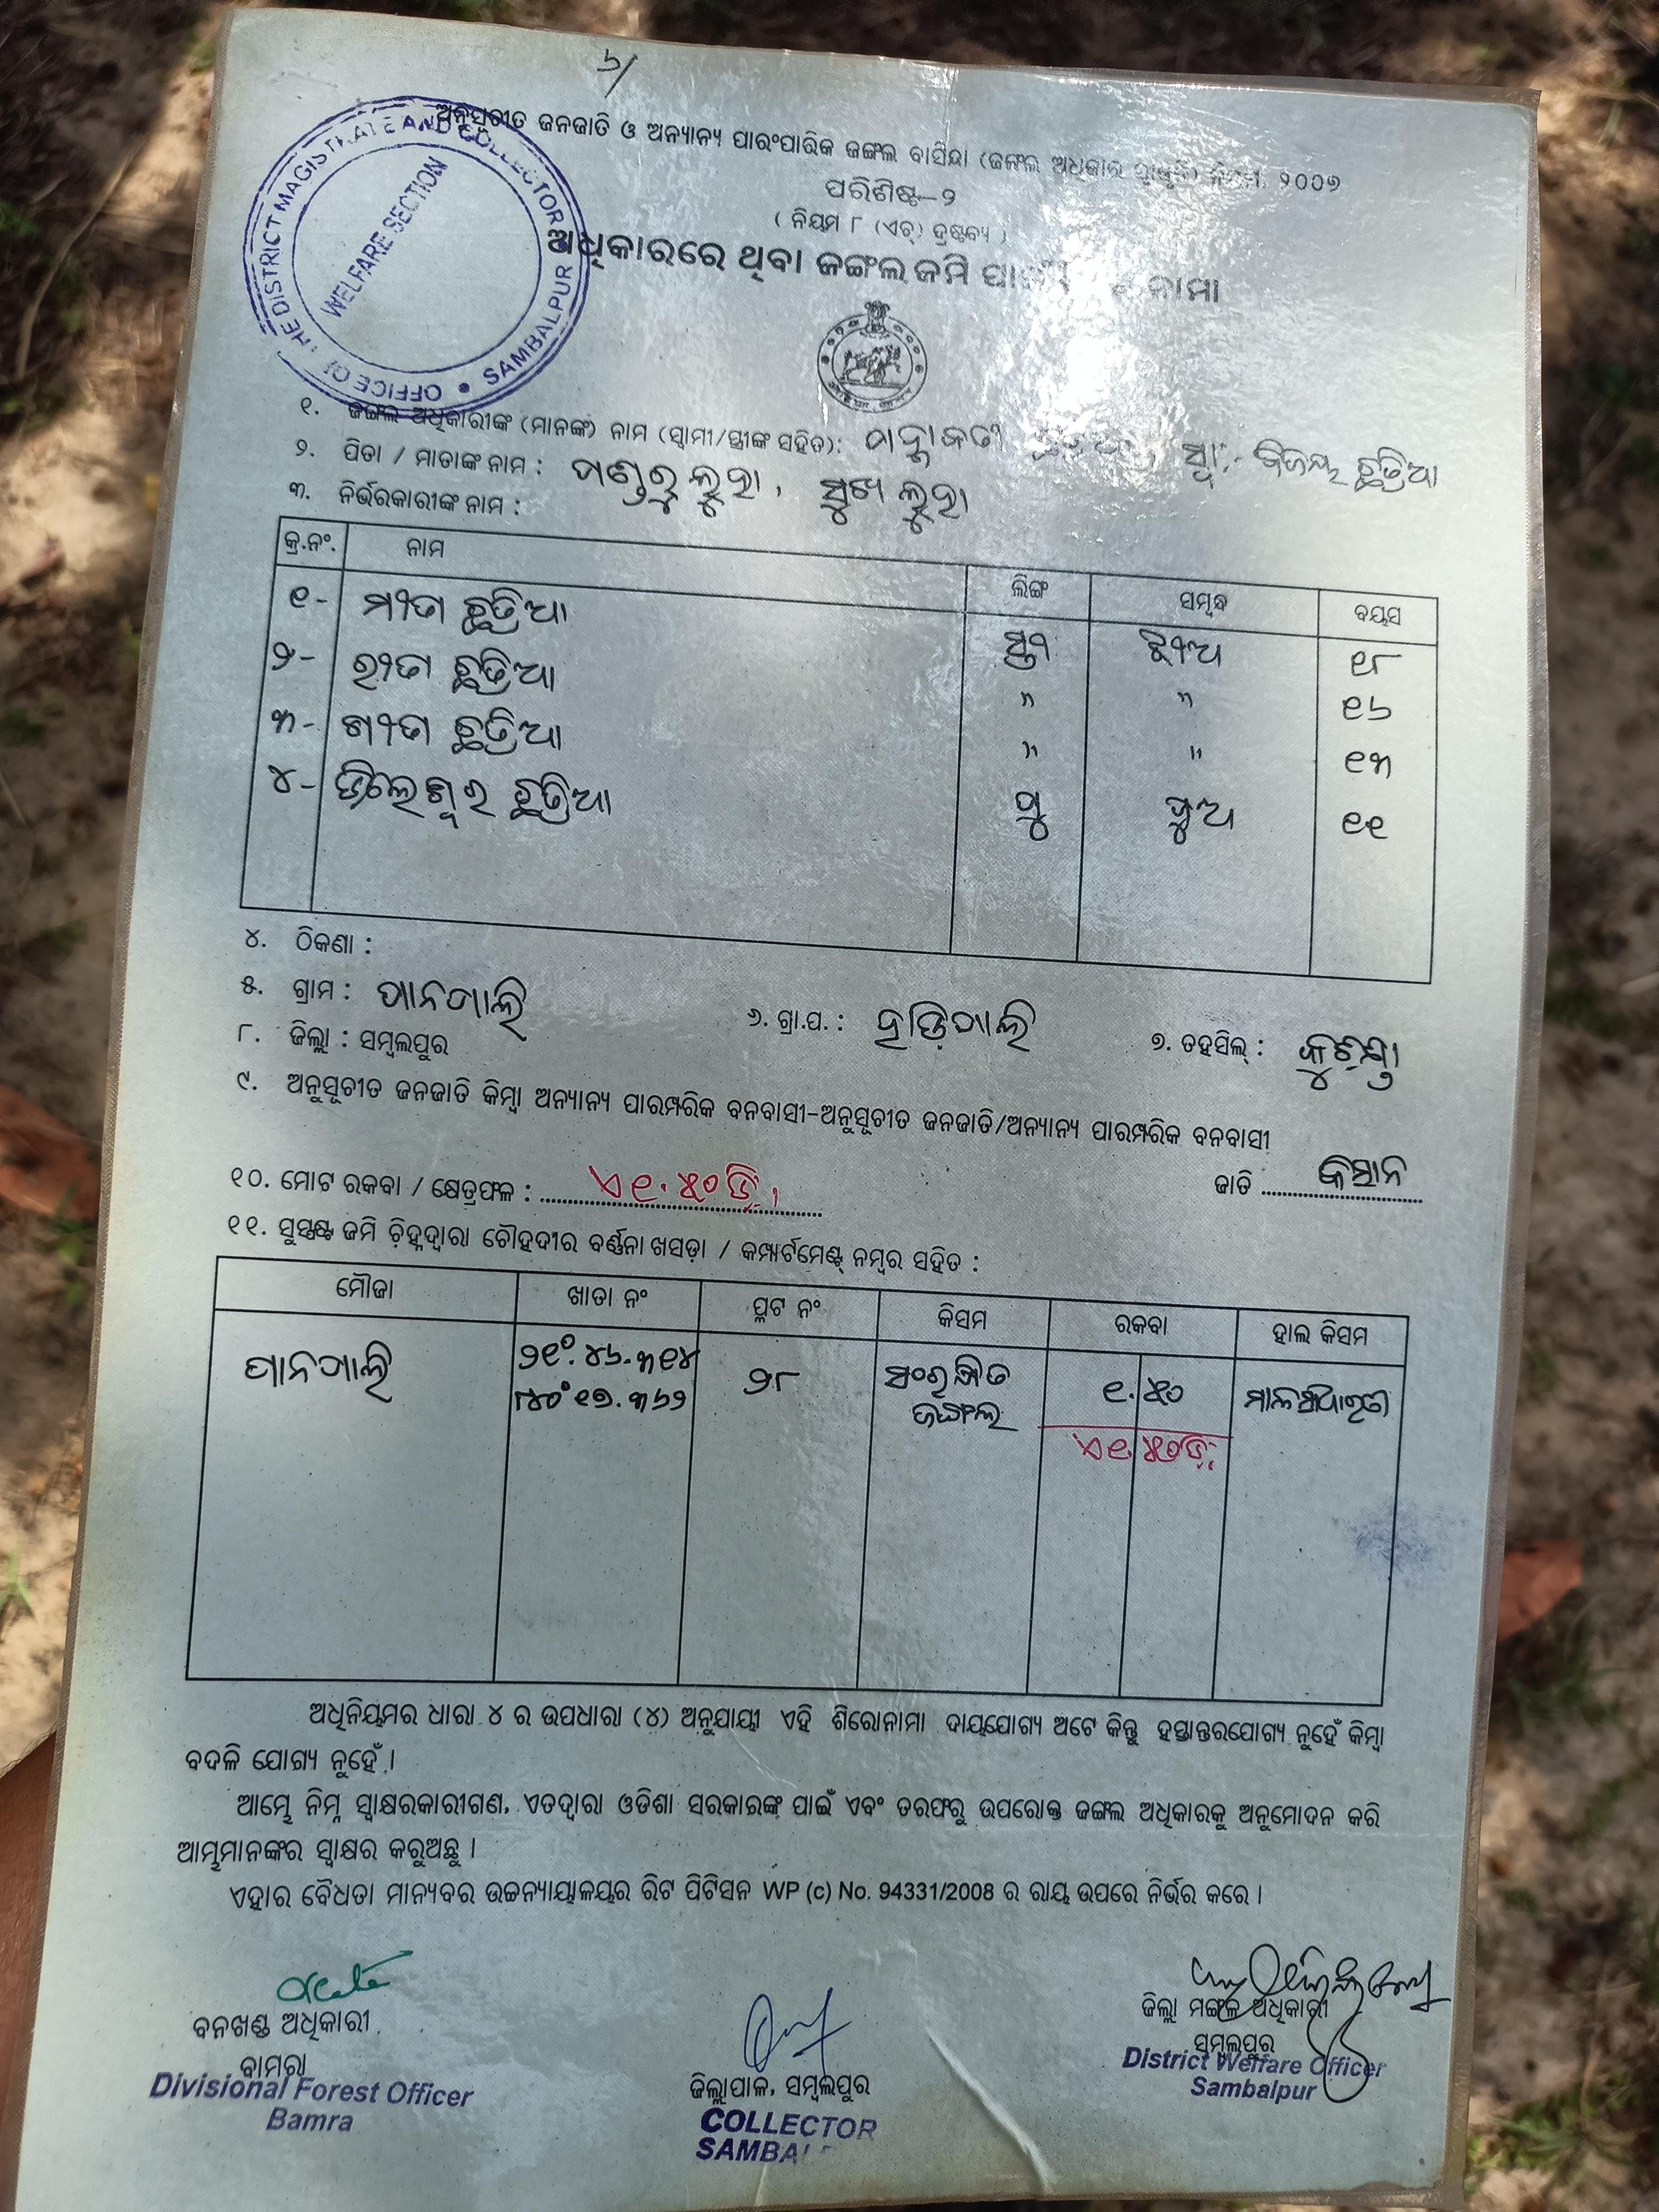 ୬/
ଅନୁସୂଚୀତ ଜନଜାତି ଓ ଅନ୍ୟାନ୍ୟ ପାରଂପାରିକ ଜଙ୍ଗଲ ବାସିନ୍ଦା (ଜଙ୍ଗଲ ଅଧିକାର ନିୟମ, ୨୦୦୭
OFFICE OF THE DISTRICT MAGISTRATE AND COLLECTOR SAMBALPUR
WELFARE SECTION
ପରିଶିଷ୍ଟ-୨
( ନିୟମ ୮ (ଏଚ୍) ଦ୍ରଷ୍ଟବ୍ୟ )
ଅଧିକାରରେ ଥିବା ଜଙ୍ଗଲ ଜମି ପାଇଁ
୧. ଜଙ୍ଗଲ ଅଧିକାରୀଙ୍କ (ମାନଙ୍କ) ନାମ (ସ୍ୱାମୀ/ସ୍ତ୍ରୀଙ୍କ ସହିତ): ସ୍ୱା:- ବିଜୟ ଛତ୍ରିଆ
୨. ପିତା / ମାତାଙ୍କ ନାମ : ଲୁହା, ସୁଖ ଲୁହା
୩. ନିର୍ଭରକାରୀଙ୍କ ନାମ :
କ୍ର.ନଂ. ନାମ ଲିଙ୍ଗ ସମ୍ବନ୍ଧ ବୟସ
୧- ମୀତା ଛତ୍ରିଆ ସ୍ତ୍ରୀ ଝିଅ ୧୮
୨- ରୀତା ଛତ୍ରିଆ " " ୧୬
୩- ଗୀତା ଛତ୍ରିଆ " " ୧୩
୪- ତିଲେଶ୍ୱର ଛତ୍ରିଆ ପୁ ପୁଅ ୧୧
୪. ଠିକଣା :
୫. ଗ୍ରାମ : ପାନପାଲି ୬. ଗ୍ରା.ପ. : ହାଡ଼ିପାଲି ୭. ତହସିଲ୍ : କୁଚିଣ୍ଡା
୮. ଜିଲ୍ଲା : ସମ୍ବଲପୁର
୯. ଅନୁସୂଚୀତ ଜନଜାତି କିମ୍ବା ଅନ୍ୟାନ୍ୟ ପାରମ୍ପରିକ ବନବାସୀ-ଅନୁସୂଚୀତ ଜନଜାତି/ଅନ୍ୟାନ୍ୟ ପାରମ୍ପରିକ ବନବାସୀ
ଜାତି କିସାନ
୧୦. ମୋଟ ରକବା / କ୍ଷେତ୍ରଫଳ : ଏ ୧.୫୦ ଡି.
୧୧. ସୁସ୍ପଷ୍ଟ ଜମି ଚିହ୍ନଦ୍ୱାରା ଚୌହଦୀର ବର୍ଣ୍ଣନା ଖସଡ଼ା / କମ୍ପାର୍ଟମେଣ୍ଟ୍ ନମ୍ବର ସହିତ :
ମୌଜା ଖାତା ନଂ ପ୍ଲଟ ନଂ କିସମ ରକବା ହାଲ କିସମ
ପାନପାଲି ୨୧°.୪୬.୩୧୪ ୨୮ ସଂରକ୍ଷିତ ୧.୫୦
୮୪୦°୧୭.୩୬୨ ଜଙ୍ଗଲ
ଏ ୧.୫୦ ଡି.
ଅଧିନିୟମର ଧାରା ୪ ର ଉପଧାରା (୪) ଅନୁଯାୟୀ ଏହି ଶିରୋନାମା ଦାୟଯୋଗ୍ୟ ଅଟେ କିନ୍ତୁ ହସ୍ତାନ୍ତରଯୋଗ୍ୟ ନୁହେଁ କିମ୍ବା
ବଦଳି ଯୋଗ୍ୟ ନୁହେଁ ।
ଆମ୍ଭେ ନିମ୍ନ ସ୍ୱାକ୍ଷରକାରୀଗଣ, ଏତଦ୍ୱାରା ଓଡିଶା ସରକାରଙ୍କ ପାଇଁ ଏବଂ ତରଫରୁ ଉପରୋକ୍ତ ଜଙ୍ଗଲ ଅଧିକାରକୁ ଅନୁମୋଦନ କରି
ଆମ୍ଭମାନଙ୍କର ସ୍ୱାକ୍ଷର କରୁଅଛୁ ।
ଏହାର ବୈଧତା ମାନ୍ୟବର ଉଚ୍ଚନ୍ୟାୟାଳୟର ରିଟ ପିଟିସନ WP (c) No. 94331/2008 ର ରାୟ ଉପରେ ନିର୍ଭର କରେ ।
ବନଖଣ୍ଡ ଅଧିକାରୀ
ବାମରା
Divisional Forest Officer
Bamra
ଜିଲ୍ଲାପାଳ, ସମ୍ବଲପୁର
COLLECTOR
ଜିଲ୍ଲା ମଙ୍ଗଳ ଅଧିକାରୀ
ସମ୍ବଲପୁର
District Welfare Officer
Sambalpur